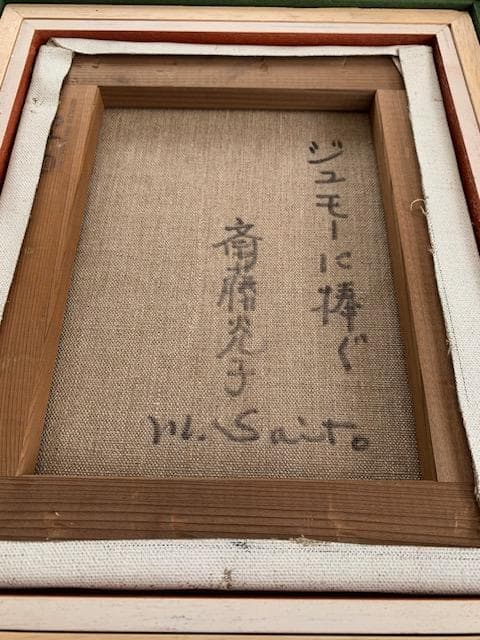 ジュモーに捧ぐ
斎藤光子
M. Saito.